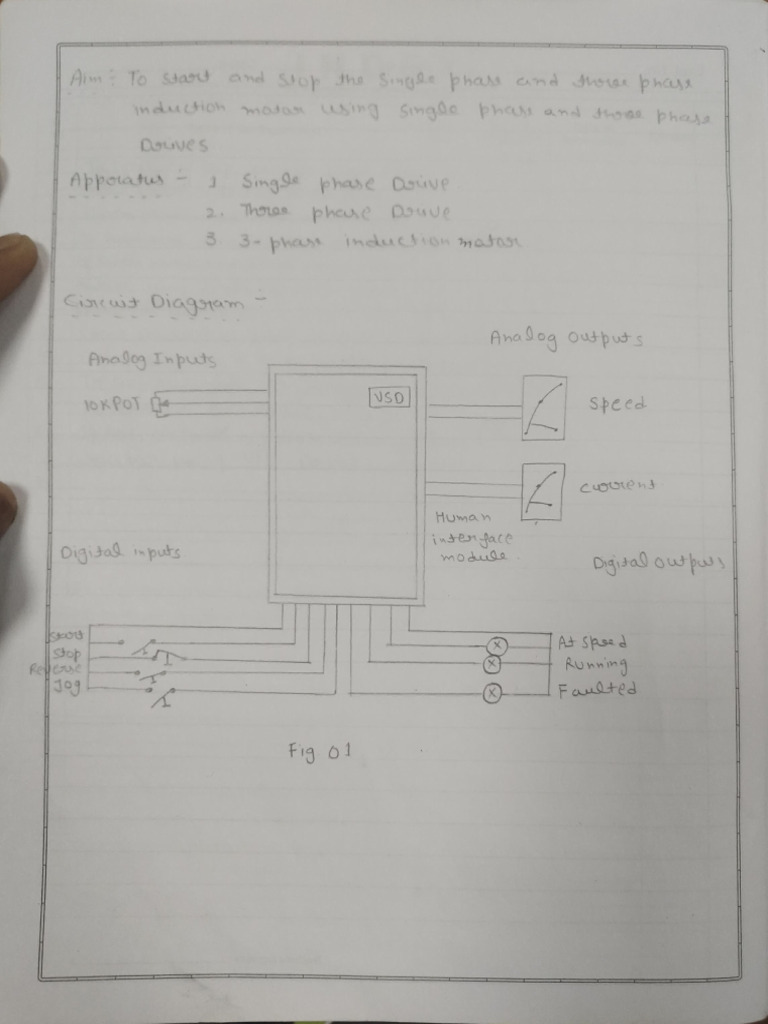 Aim : To start and stop the single phase and three phase
induction motor using single phase and three phase
Drives
Apparatus - 1 Single phase Drive
2. Three phase Drive
3 3-phase induction motor
Circuit Diagram -
Analog Outputs
Analog Inputs
10KPOT
VSD
Speed
current
Human
interface
module.
Digital inputs
Digital outputs
Start
Stop
Reverse
Jog
At Speed
Running
Faulted
Fig 01